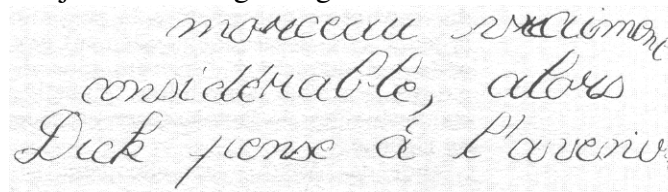 morceau vraiment
considérable, alors
Dick pense à l'avenir